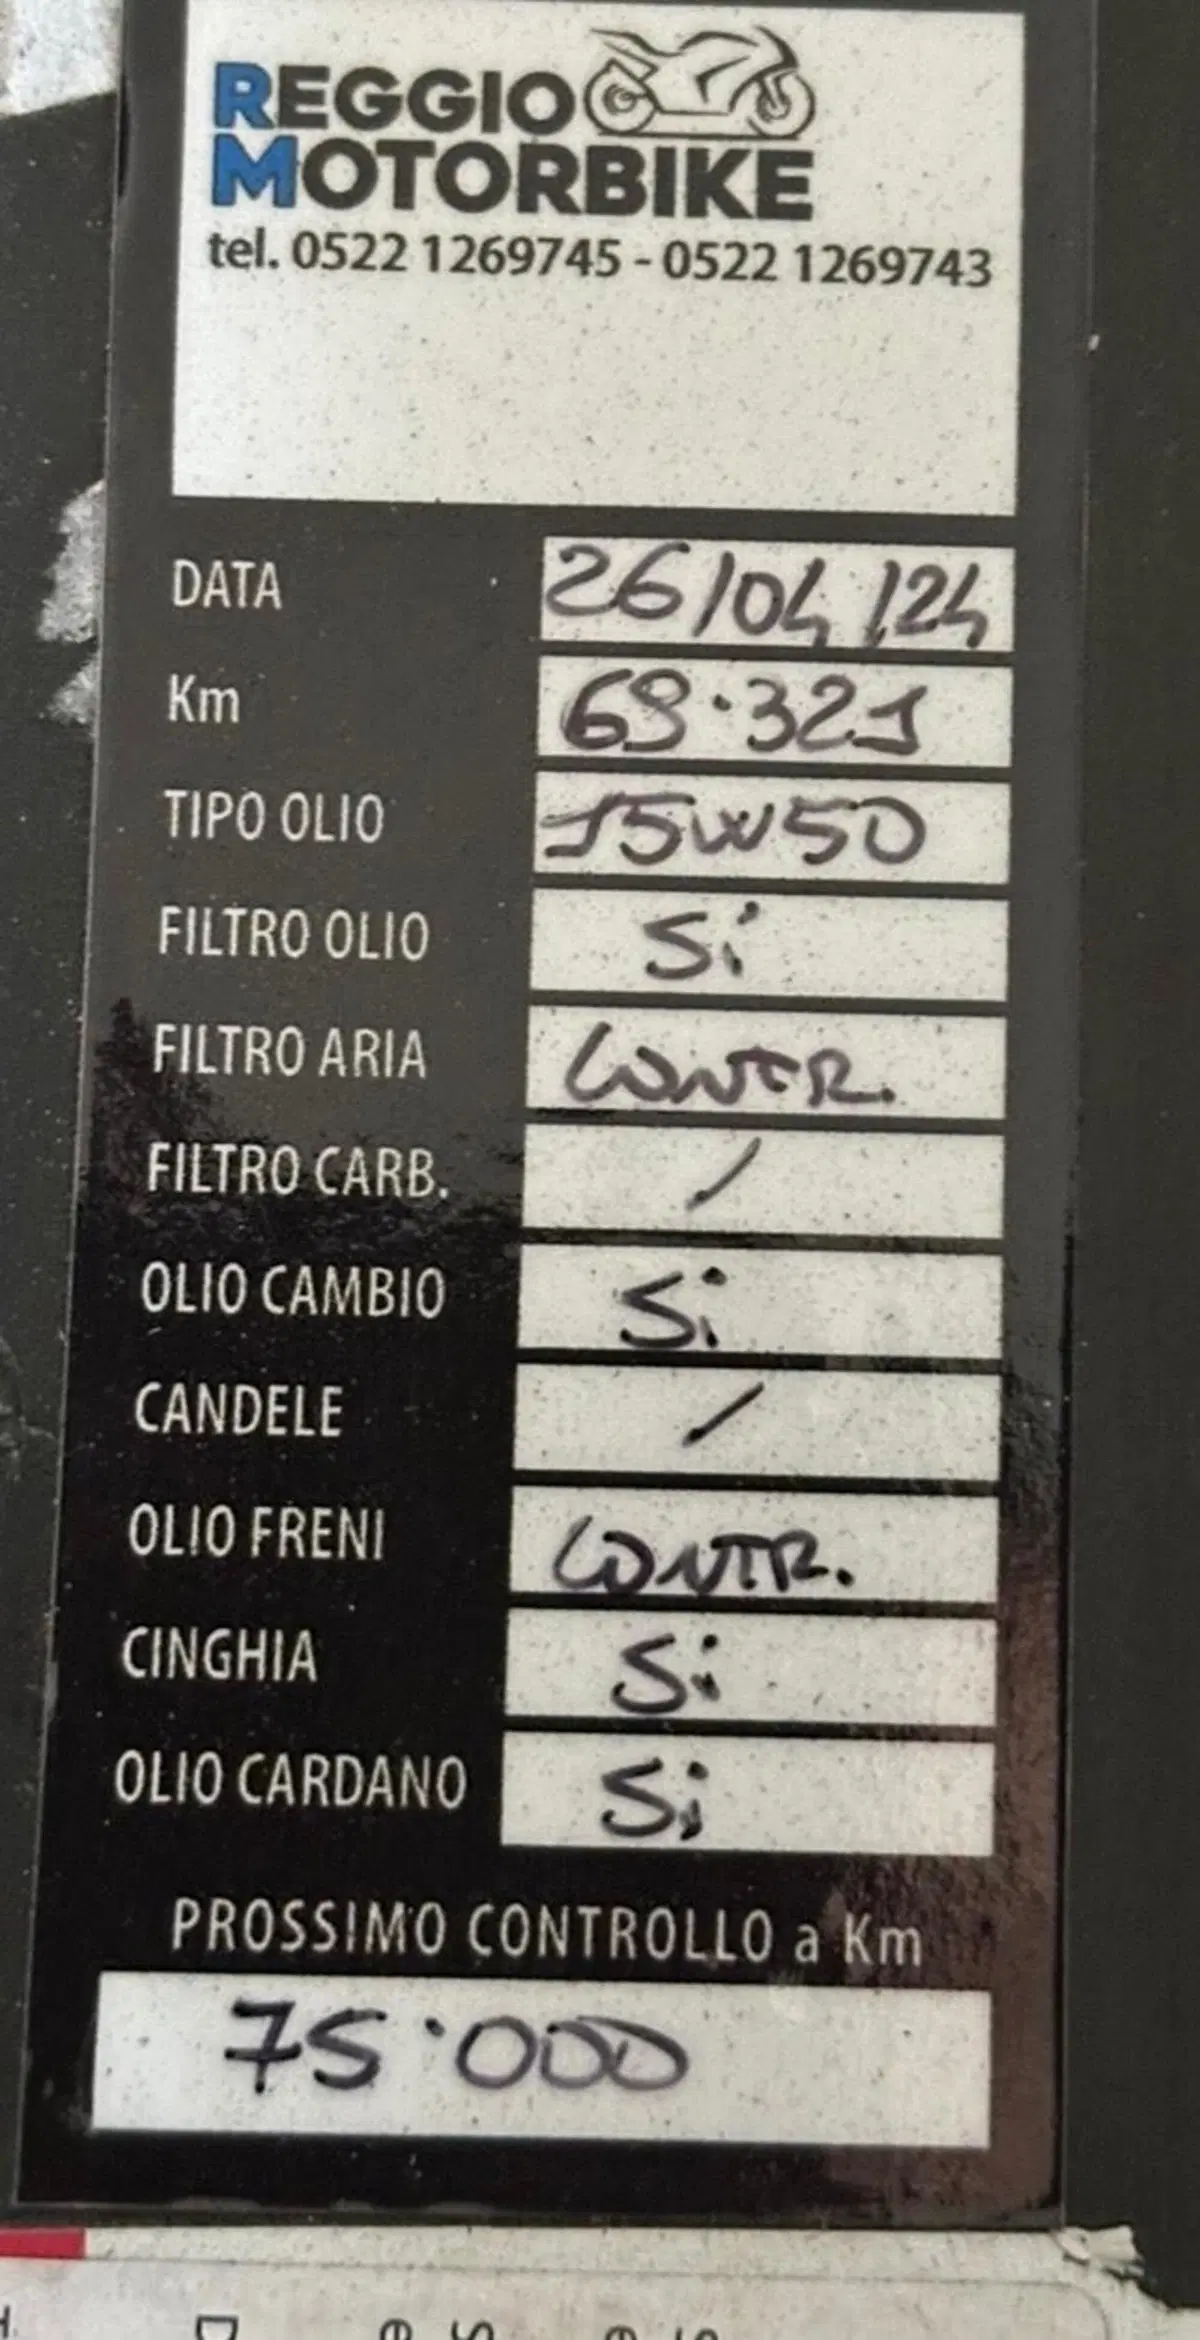 REGGIO
MOTORBIKE
tel. 0522 1269745 - 0522 1269743
DATA 26/04/24
Km 69.321
TIPO OLIO 15W50
FILTRO OLIO Si
FILTRO ARIA CONTR.
FILTRO CARB. /
OLIO CAMBIO Si
CANDELE /
OLIO FRENI CONTR.
CINGHIA Si
OLIO CARDANO Si
PROSSIMO CONTROLLO a Km
75.000